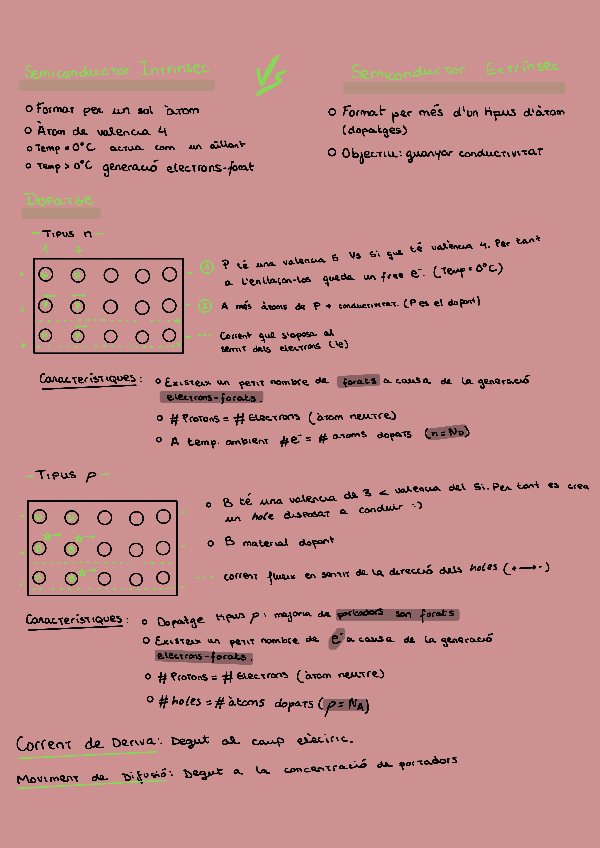 Semiconductor Intrínsec
Vs
Semiconductor Extrínsec
o Format per un sol àtom
o Àtom de valencia 4
o Temp = 0°C actua com un aïllant
o Temp > 0°C generació electrons-forat
o Format per més d'un tipus d'àtom
(dopatges)
o Objectiu: guanyar conductivitat
Dopatge
- Tipus n -
① P té una valencia 5 Vs Si que té valència 4. Per tant
a l'enllaçar-los queda un free e⁻. (Temp = 0°C)
② A més àtoms de P + conductivitat. (P es el dopant)
--- Corrent que s'oposa al
sentit dels electrons (Ie)
Característiques: o Existeix un petit nombre de forats a causa de la generació
electrons-forats.
o # Protons = # Electrons (àtom neutre)
o A temp. ambient #e⁻ = # atoms dopats (n = N_D)
- Tipus p -
o B té una valencia de 3 < valencia del Si. Per tant es crea
un hole disposat a conduir :)
o B material dopant
--- corrent flueix en sentit de la direcció dels holes (+ → -)
Característiques: o Dopatge tipus p: majoria de portadors son forats
o Existeix un petit nombre de e⁻ a causa de la generació
electrons-forats.
o # Protons = # Electrons (àtom neutre)
o # holes = # àtoms dopats (p = N_A)
Corrent de Deriva: Degut al camp elèctric.
Moviment de Difusió: Degut a la concentració de portadors